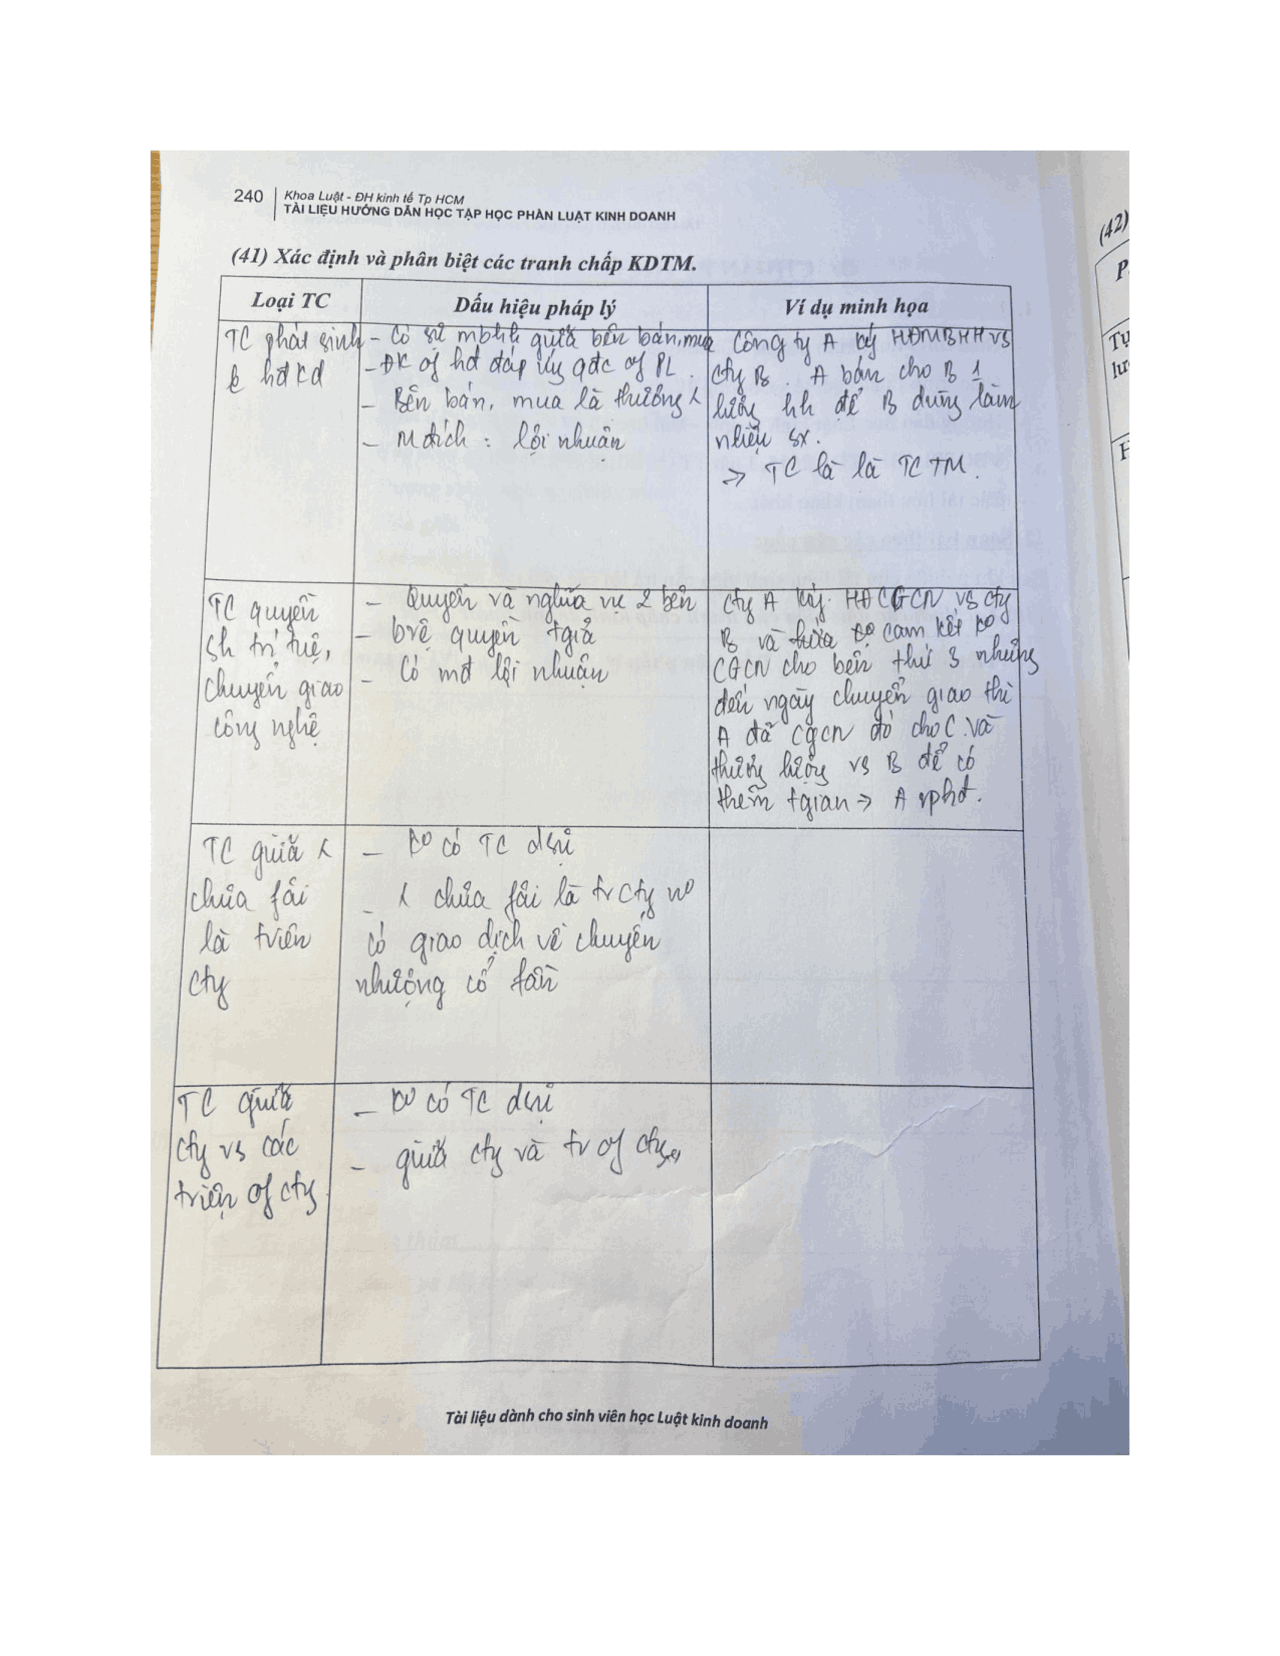 240 Khoa Luật - ĐH kinh tế Tp HCM
TÀI LIỆU HƯỚNG DẪN HỌC TẬP HỌC PHẦN LUẬT KINH DOANH
(41) Xác định và phân biệt các tranh chấp KDTM.
Loại TC
Dấu hiệu pháp lý
Ví dụ minh họa
TC phát sinh
hđ kd
- Có sự mbhh giữa bên bán, mua
- ĐK of hđ đáp ứng qđc of PL.
- Bên bán, mua là thương
- M đích : lợi nhuận
Công ty A ký HĐMBHH vs
cty B. A bán cho B 1
lượng hh để B dùng làm
nhiệu sx.
=> TC là là TCTM.
TC quyền
sh trí tuệ,
chuyển giao
công nghệ
- Quyền và nghĩa vụ 2 bên
- bvệ quyền tgiả
- Có mđ lợi nhuận
cty A ký HĐCGCN vs cty
B và hứa ko cam kết ko
CGCN cho bên thứ 3 nhưng
đến ngày chuyển giao thì
A đã CGCN đó cho C và
thương lượng vs B để có
thêm tgian => A vphđ.
TC giữa
chưa fải
là tviên
cty
- ko có TC dsự
- chưa fải là tv cty
có giao dịch về chuyển
nhượng cổ fần
TC giữa
cty vs các
tviên of cty
- ko có TC dsự
- giữa cty và tv of cty
Tài liệu dành cho sinh viên học Luật kinh doanh
(42)
P
Tự
lư